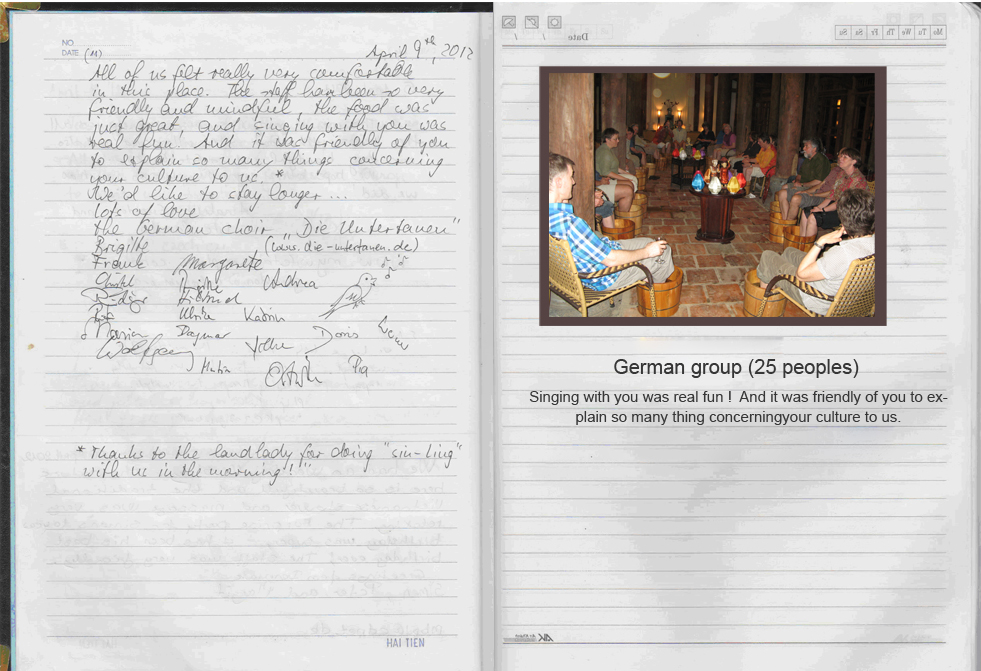 NO
DATE (11)
April 9th, 2012
All of us felt really very comfortable
in this place. The staff have been so very
friendly and mindful, the food was
just great, and singing with you was
real fun. And it was friendly of you
to explain so many things concerning
your culture to us. *
We'd like to stay longer ...
Lots of love
the German choir „Die Untertanen"
Brigitte (www.die-untertanen.de)
Frank Margarete
Andrea
Ulrike Katrin
Marion Dagmar Doris
Wolfgang
Pia
* Thanks to the landlady for doing "sin-ling"
with us in the morning!"
HAI TIEN
Date / /
Mo Tu We Th Fr Sa Su
German group (25 peoples)
Singing with you was real fun ! And it was friendly of you to ex-
plain so many thing concerningyour culture to us.